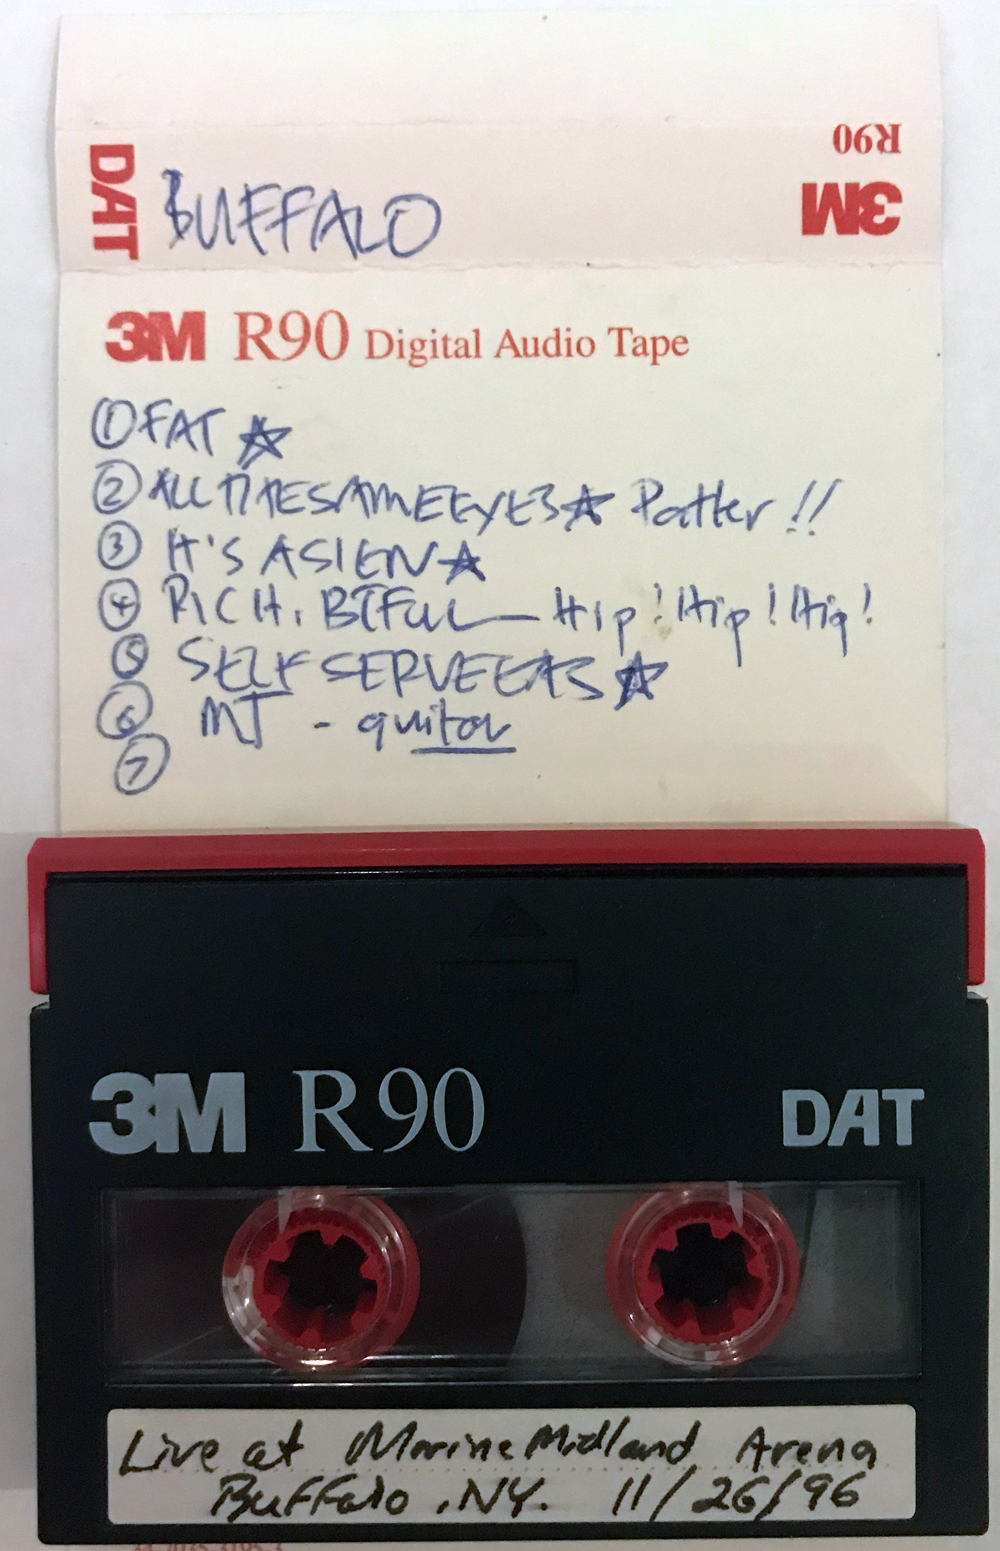 R90
3M
DAT BUFFALO
3M R90 Digital Audio Tape
① FAT ☆
② ALL THE SAME EYES ☆ Patter !!
③ IT'S A SIEN ☆
④ RICH, BTFUL — Hip! Hip! Hip!
⑤ SELF SERVE ☆
⑥ MJ - guitar
⑦
3M R90 DAT
Live at Marine Midland Arena
Buffalo, NY. 11/26/96